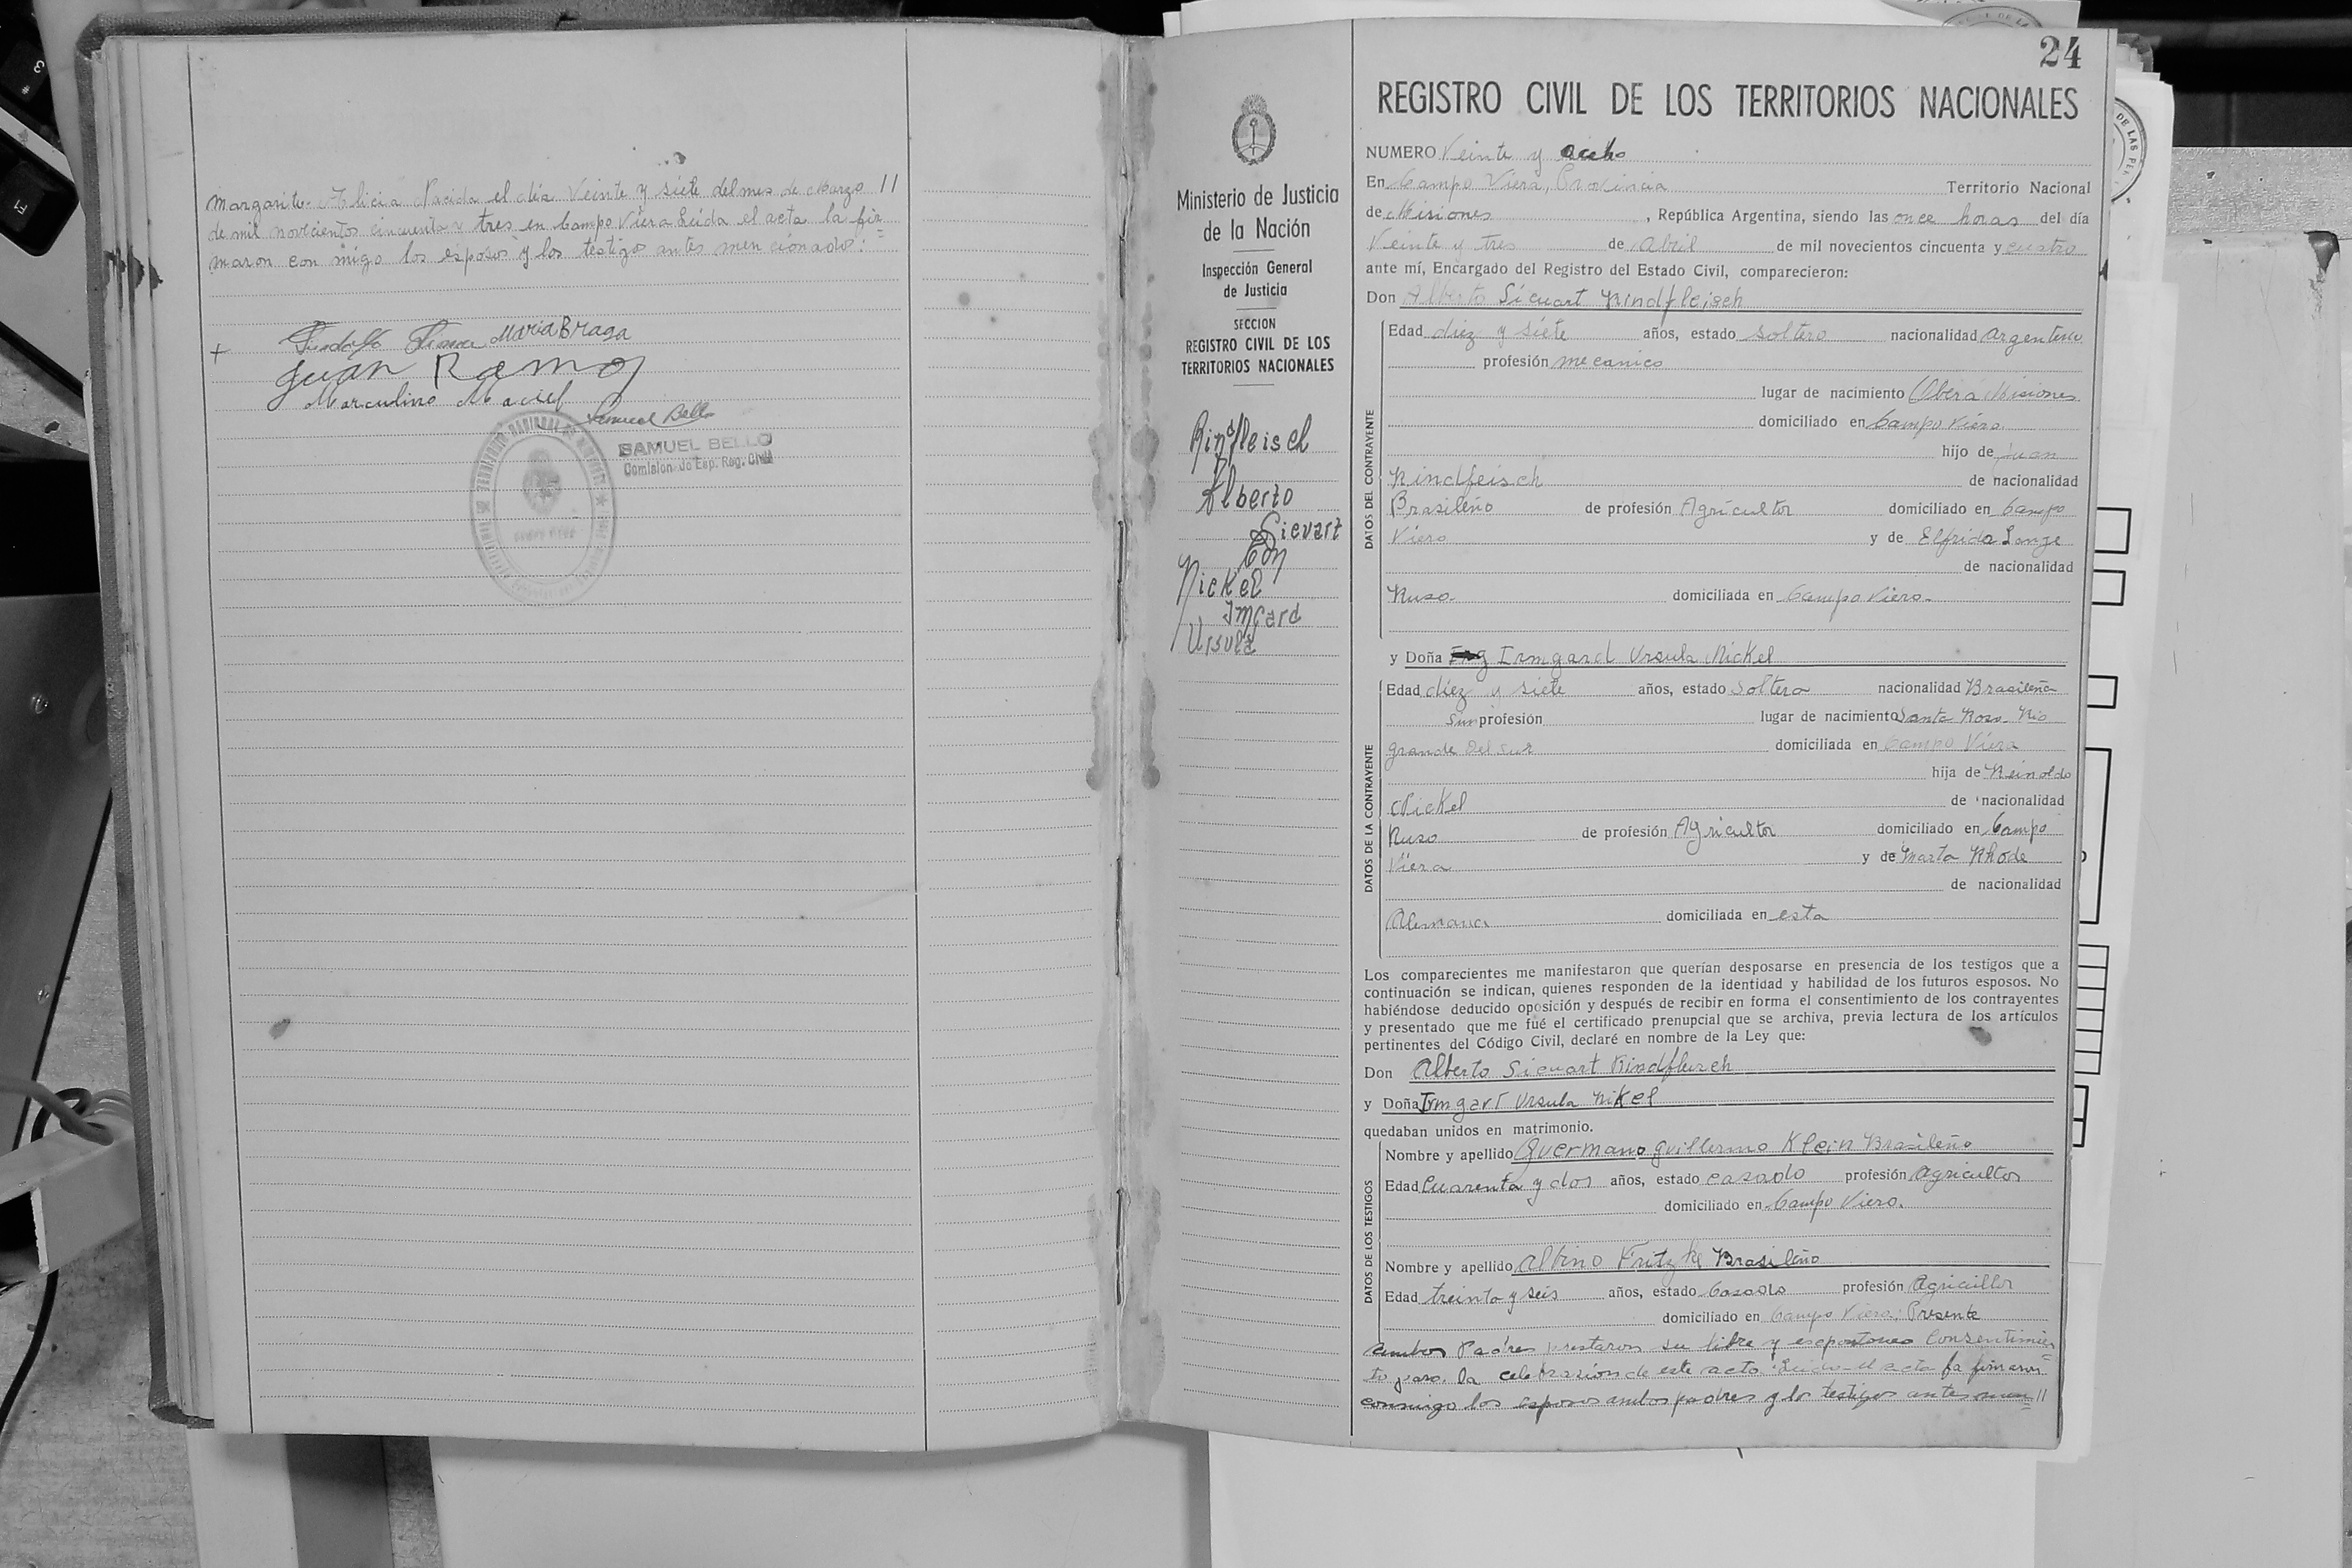 Margarita Alicia Nacida el día Veinte y siete del mes de Marzo //
de mil novecientos cincuenta y tres en Campo Viera Leida el acta la fir=
maron con migo los esposos y los testigos antes mencionados:
Maria Braga
Juan Ramos
Marculino Maciel
Samuel Bello
SAMUEL BELLO
Comisionado Esp. Reg. Civil
24
REGISTRO CIVIL DE LOS TERRITORIOS NACIONALES
Ministerio de Justicia
de la Nación
Inspección General
de Justicia
SECCION
REGISTRO CIVIL DE LOS
TERRITORIOS NACIONALES
Rindfleisch
Alberto
Sievart
Con
Nickel
Imgard
Ursula
NUMERO Veinte y ocho
En Campo Viera, Provincia Territorio Nacional
de Misiones , República Argentina, siendo las once horas del día
Veinte y tres de Abril de mil novecientos cincuenta y cuatro
ante mí, Encargado del Registro del Estado Civil, comparecieron:
Don Alberto Sieuart Rindfleisch
DATOS DEL CONTRAYENTE
Edad diez y siete años, estado soltero nacionalidad argentino
profesión mecanico
lugar de nacimiento Oberá Misiones
domiciliado en Campo Viera
hijo de Juan
Rindfeisch de nacionalidad
Brasileño de profesión Agricultor domiciliado en Campo
Viera y de Elfrida Lange
de nacionalidad
Ruso domiciliada en Campo Viera
y Doña Irmgard Ursula Nickel
DATOS DE LA CONTRAYENTE
Edad diez y siete años, estado Soltera nacionalidad Brasileña
sin profesión lugar de nacimiento Santa Rosa Rio
grande del sur domiciliada en Campo Viera
hija de Reinoldo
Nickel de nacionalidad
Ruso de profesión Agricultor domiciliado en Campo
Viera y de Marta Rhode
de nacionalidad
Alemana domiciliada en esta
Los comparecientes me manifestaron que querían desposarse en presencia de los testigos que a
continuación se indican, quienes responden de la identidad y habilidad de los futuros esposos. No
habiéndose deducido oposición y después de recibir en forma el consentimiento de los contrayentes
y presentado que me fué el certificado prenupcial que se archiva, previa lectura de los artículos
pertinentes del Código Civil, declaré en nombre de la Ley que:
Don Alberto Sieuart Rindfleisch
y Doña Irmgart Ursula Nikel
quedaban unidos en matrimonio.
DATOS DE LOS TESTIGOS
Nombre y apellido Guermano Guillermo Klein Brasileño
Edad Cuarenta y dos años, estado casado profesión Agricultor
domiciliado en Campo Viera.
Nombre y apellido Albino Fritzke Brasileño
Edad treinta y seis años, estado Casado profesión Agricultor
domiciliado en Campo Viera: Presente
ambos Padres prestaron su libre y espontaneo Consentimien=
to para la celebrazión de este acto. Leida el acta la firmaron
consigo los esposos ambos padres y los testigos antes men //